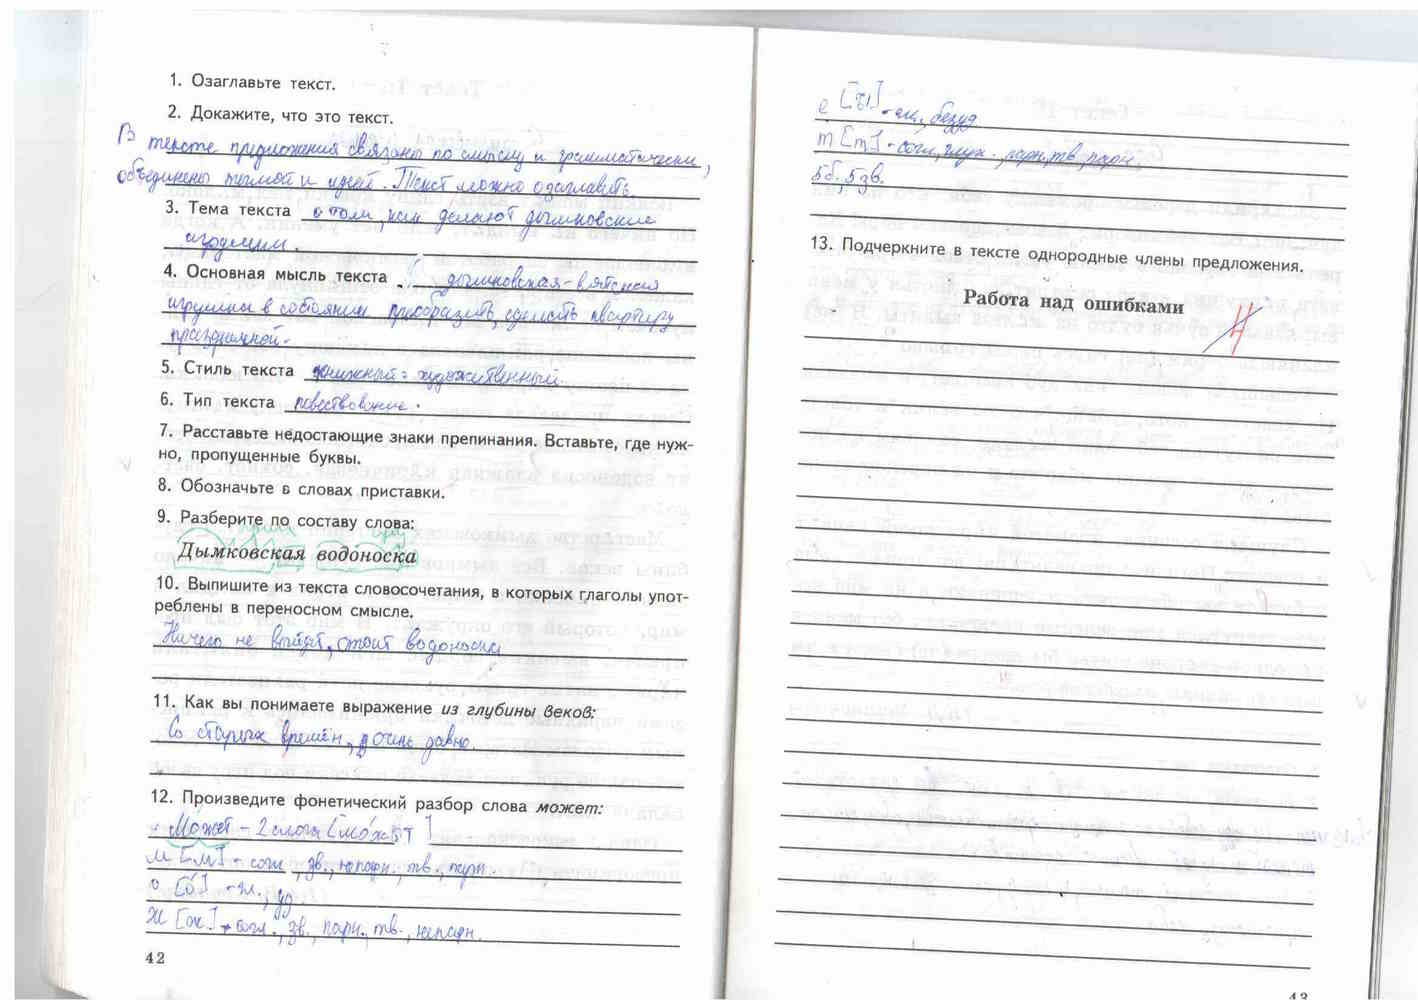 1. Озаглавьте текст.
2. Докажите, что это текст.
В тексте предложения связаны по смыслу и грамматически,
объединены темой и идеей. Текст можно озаглавить
3. Тема текста о том, как делают дымковские
игрушки.
4. Основная мысль текста дымковская-вятская
игрушка в состоянии приобразить, сделать квартиру
праздничной.
5. Стиль текста книжный: художественный.
6. Тип текста повествование.
7. Расставьте недостающие знаки препинания. Вставьте, где нуж-
но, пропущенные буквы.
8. Обозначьте в словах приставки.
9. Разберите по составу слова:
Дымковская водоноска
10. Выпишите из текста словосочетания, в которых глаголы упот-
реблены в переносном смысле.
Ничего не выйдет, стоит водоноска
11. Как вы понимаете выражение из глубины веков:
Со старых времён, очень давно.
12. Произведите фонетический разбор слова может:
Может – 2 слога [мо́жыт]
м [м] - согл., зв., непарн., тв., парн.
о [о́] - гл., уд
ж [ж] - согл., зв., парн., тв., непарн.
42
е [ы] - гл., безуд
т [т] - согл., глух. парн, тв, парн
5б. 5зв.
13. Подчеркните в тексте однородные члены предложения.
Работа над ошибками
43